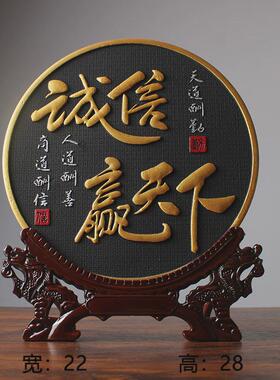 诚信
赢天下
天道酬勤
人道酬善
商道酬信
宽：22
高：28